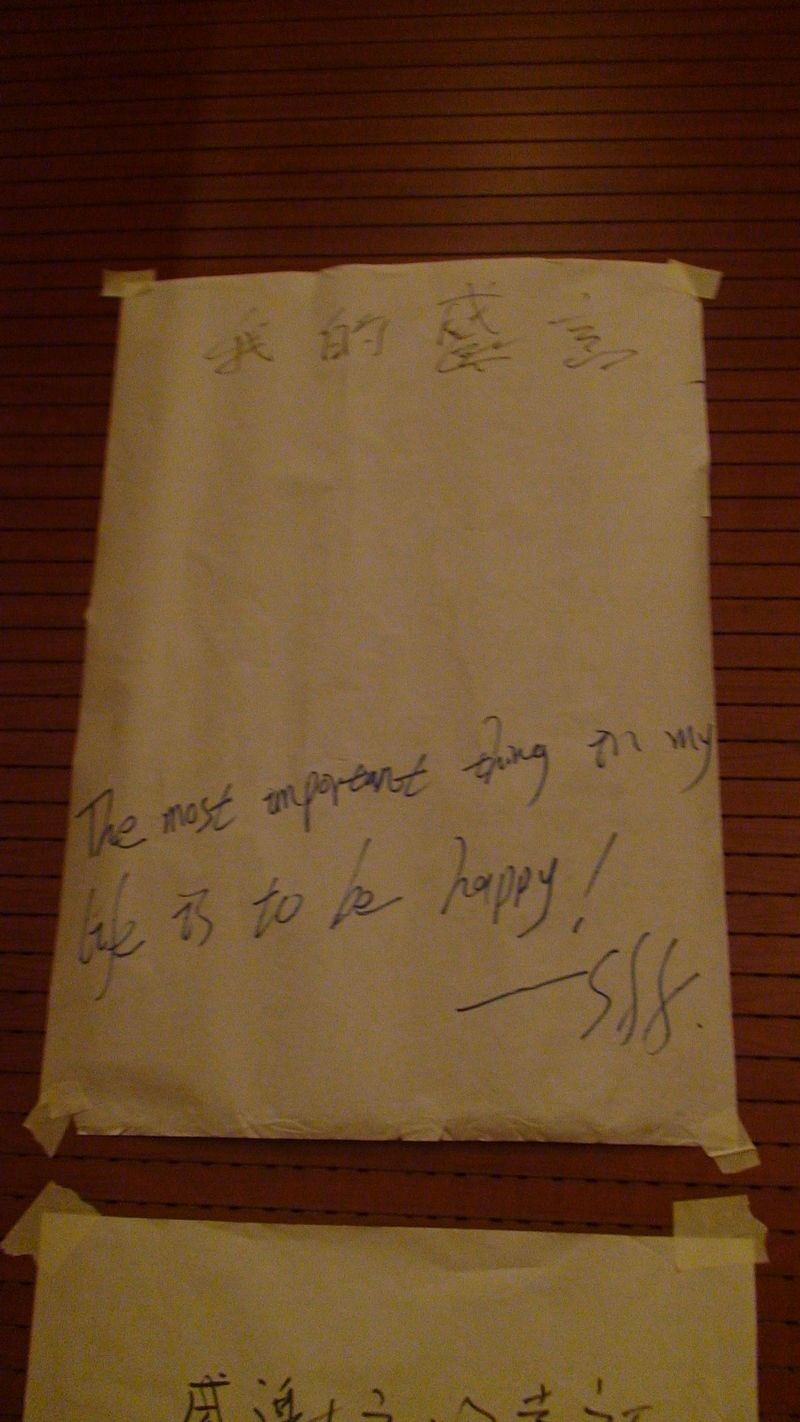 我的感言
The most important thing in my
life is to be happy!
——Sff.
感谢